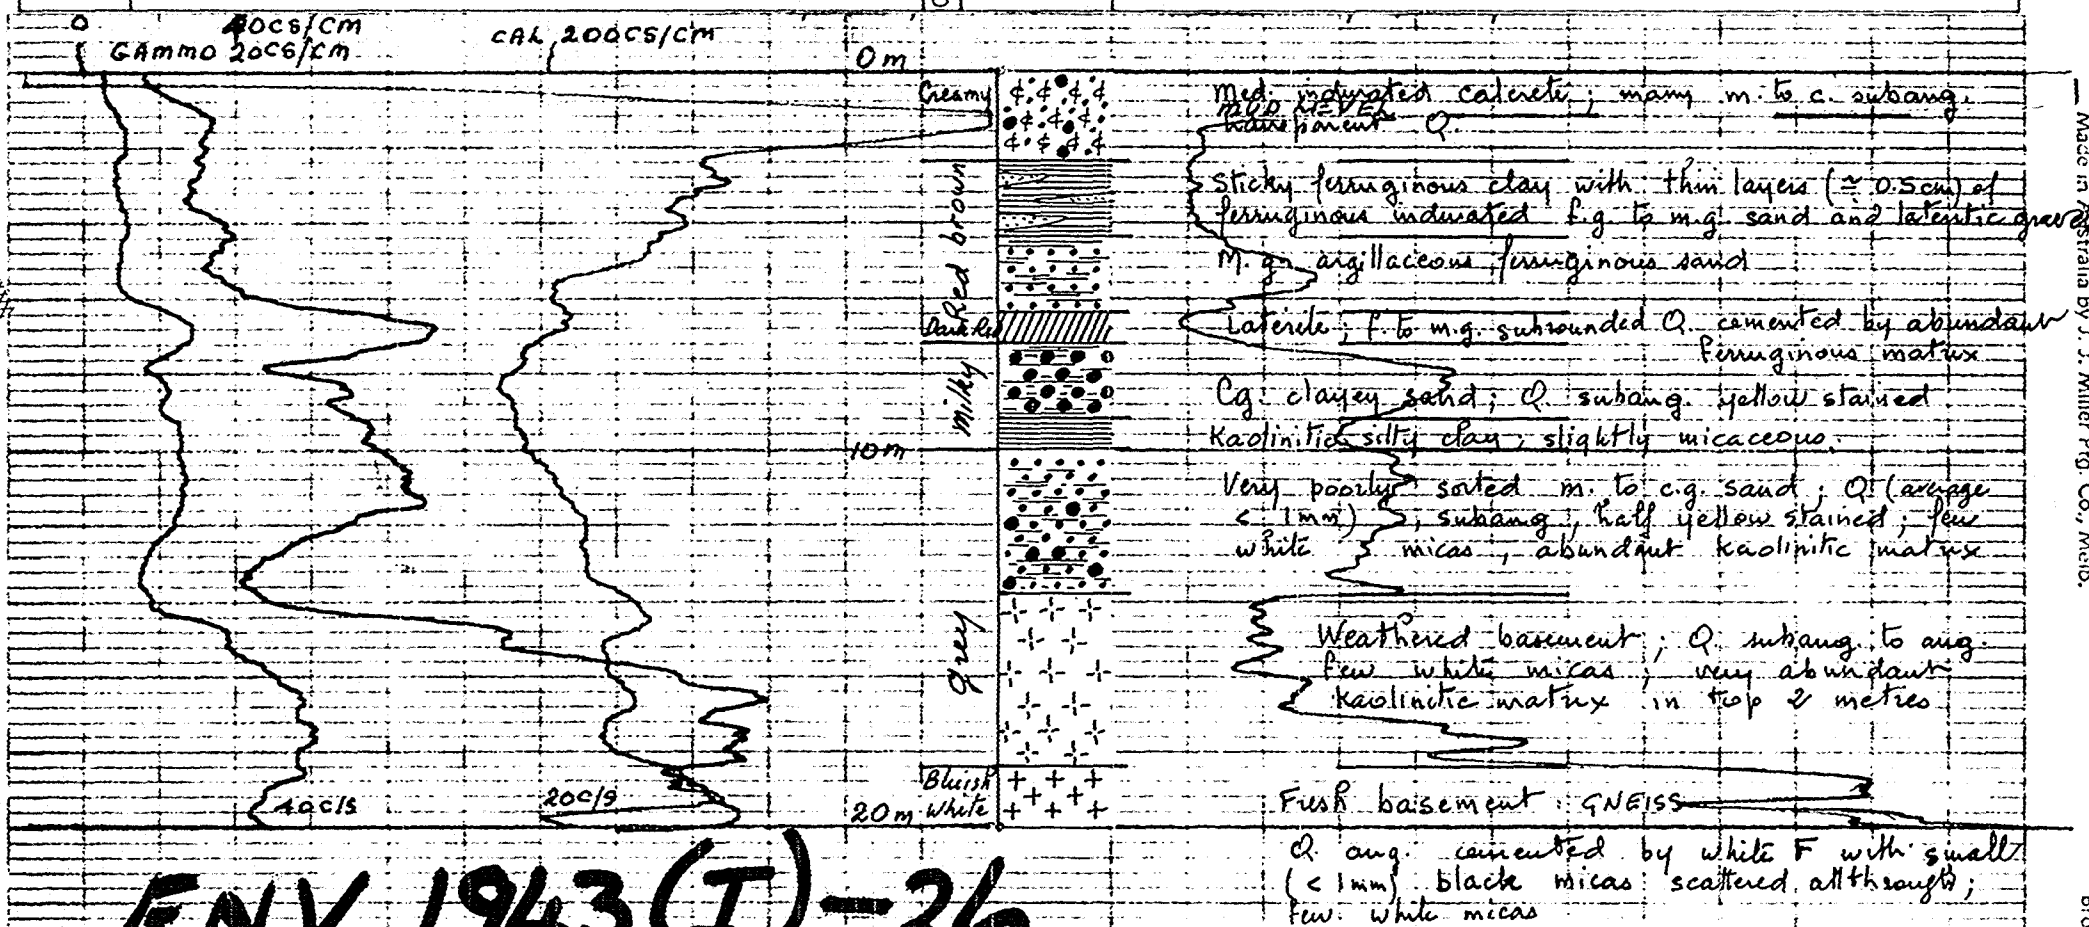 0
40CS/CM
GAMMO 20CS/CM
CAL 200CS/CM
0m
Creamy
Med. indurated calcrete; many m. to c. subang.
MUD LEVEL
transparent Q.
Red brown
Sticky ferruginous clay with thin layers (≃ 0.5cm) of
ferruginous indurated f.g. to m.g. sand and lateritic gravel
M.g. argillaceous, ferruginous sand
Dark Red
Laterite; f. to m.g. subrounded Q. cemented by abundant
ferruginous matrix
milky
Cg. clayey sand; Q. subang. yellow stained
Kaolinitic silty clay, slightly micaceous.
10m
Very poorly sorted m. to c.g. sand; Q (average
< 1mm), subang, half yellow stained; few
white micas, abundant kaolinitic matrix
grey
Weathered basement; Q. subang. to ang.
few white micas; very abundant
kaolinitic matrix in top 2 metres
Bluish
white
40C/S
20C/S
20m
Fresh basement: GNEISS
Q. ang. cemented by white F with small
(< 1mm) black micas scattered all through;
few white micas
ENV 1943(I)-26
Made in Australia by J. J. Miller Prtg Co., Melb.